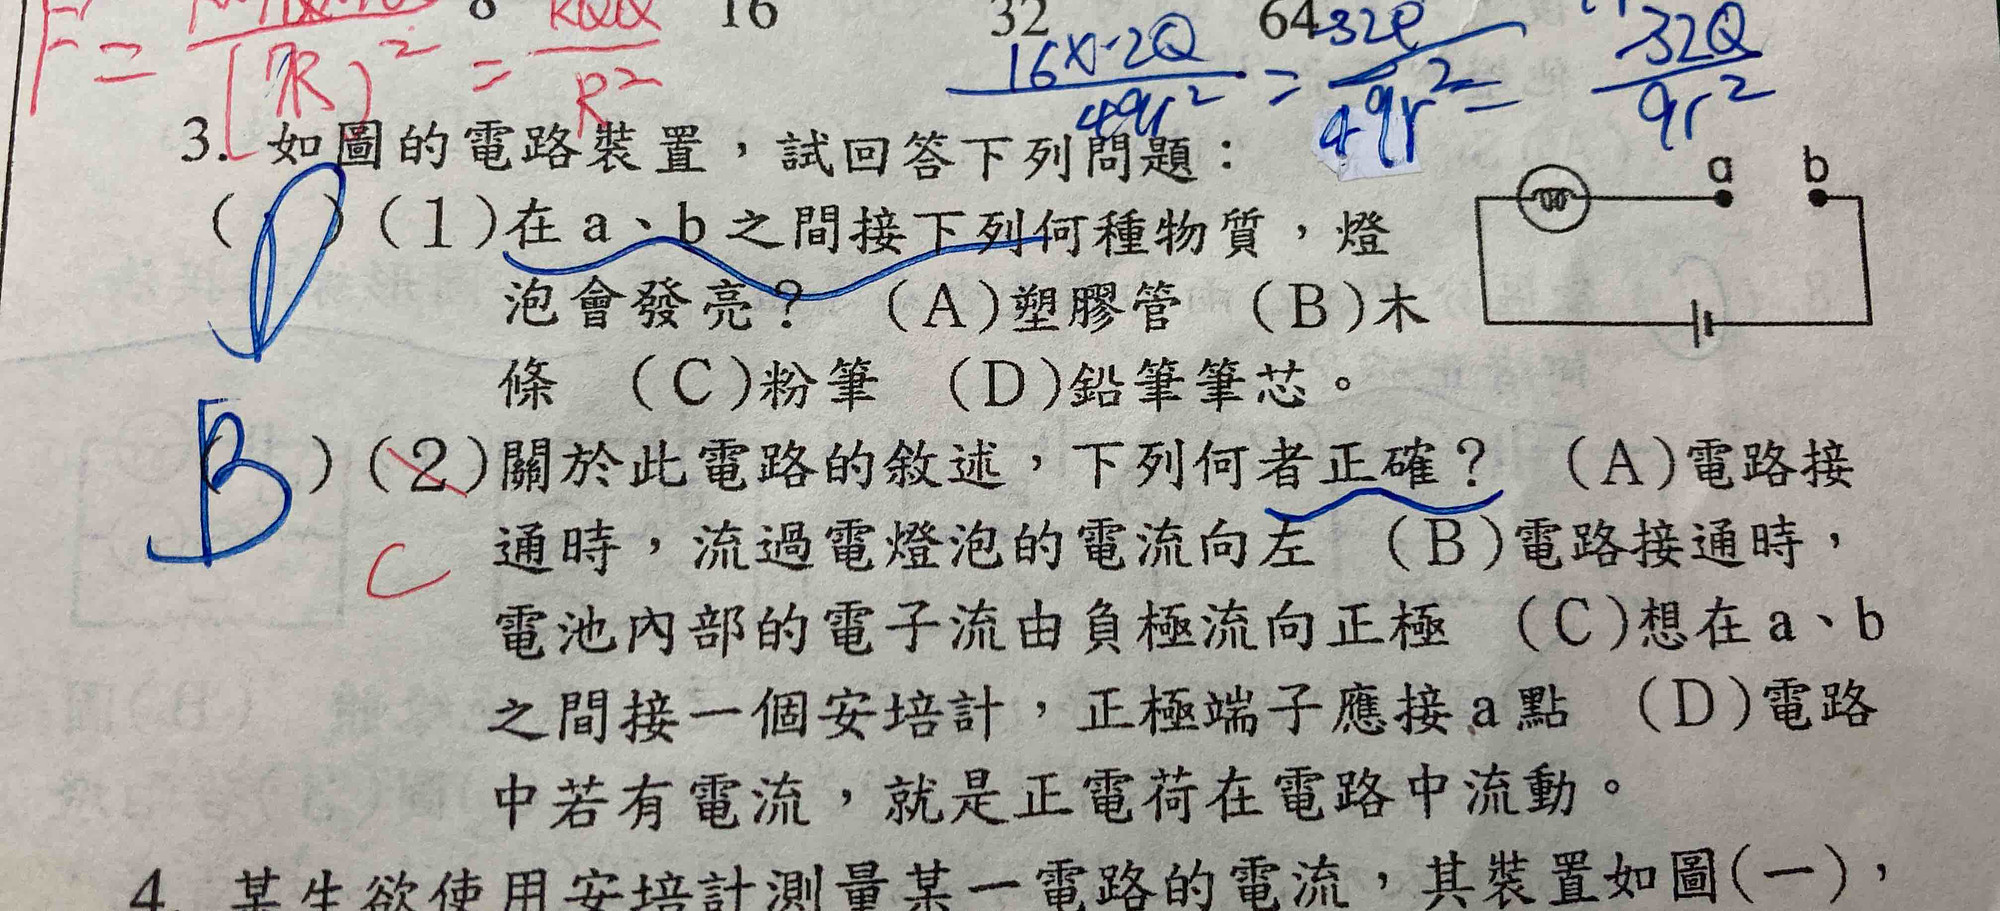 8 16 32 64
F = = KQQ / R²
(7R)²
16×2Q / 49r² = 32Q / 49r² = 32Q / 9r²
3. 如圖的電路裝置，試回答下列問題：
a b
(D)(1)在a、b之間接下列何種物質，燈
泡會發亮？ (A)塑膠管 (B)木
條 (C)粉筆 (D)鉛筆筆芯。
(B)(2)關於此電路的敘述，下列何者正確？ (A)電路接
C
通時，流過電燈泡的電流向左 (B)電路接通時，
電池內部的電子流由負極流向正極 (C)想在a、b
之間接一個安培計，正極端子應接a點 (D)電路
中若有電流，就是正電荷在電路中流動。
4. 某生欲使用安培計測量某一電路的電流，其裝置如圖(一)，